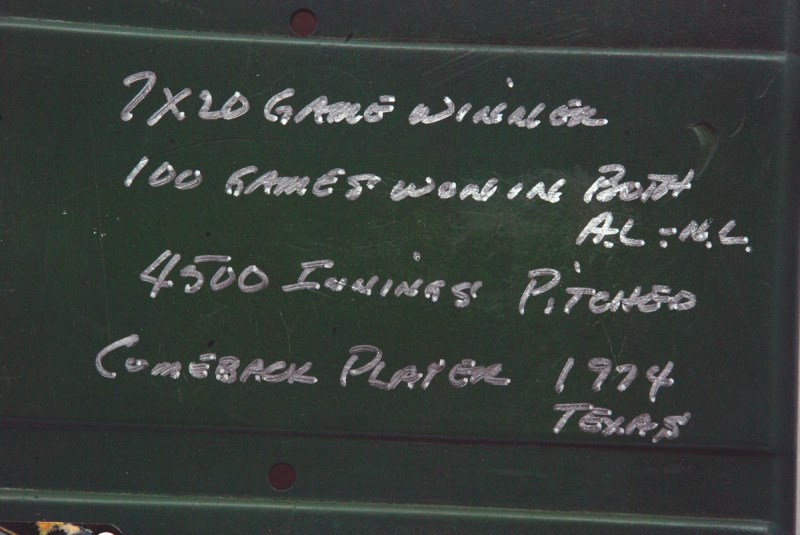 7X20 GAME WINNER
100 GAMES WON IN BOTH
A.L = N.L.
4500 INNINGS PITCHED
COMEBACK PLAYER 1974
TEXAS